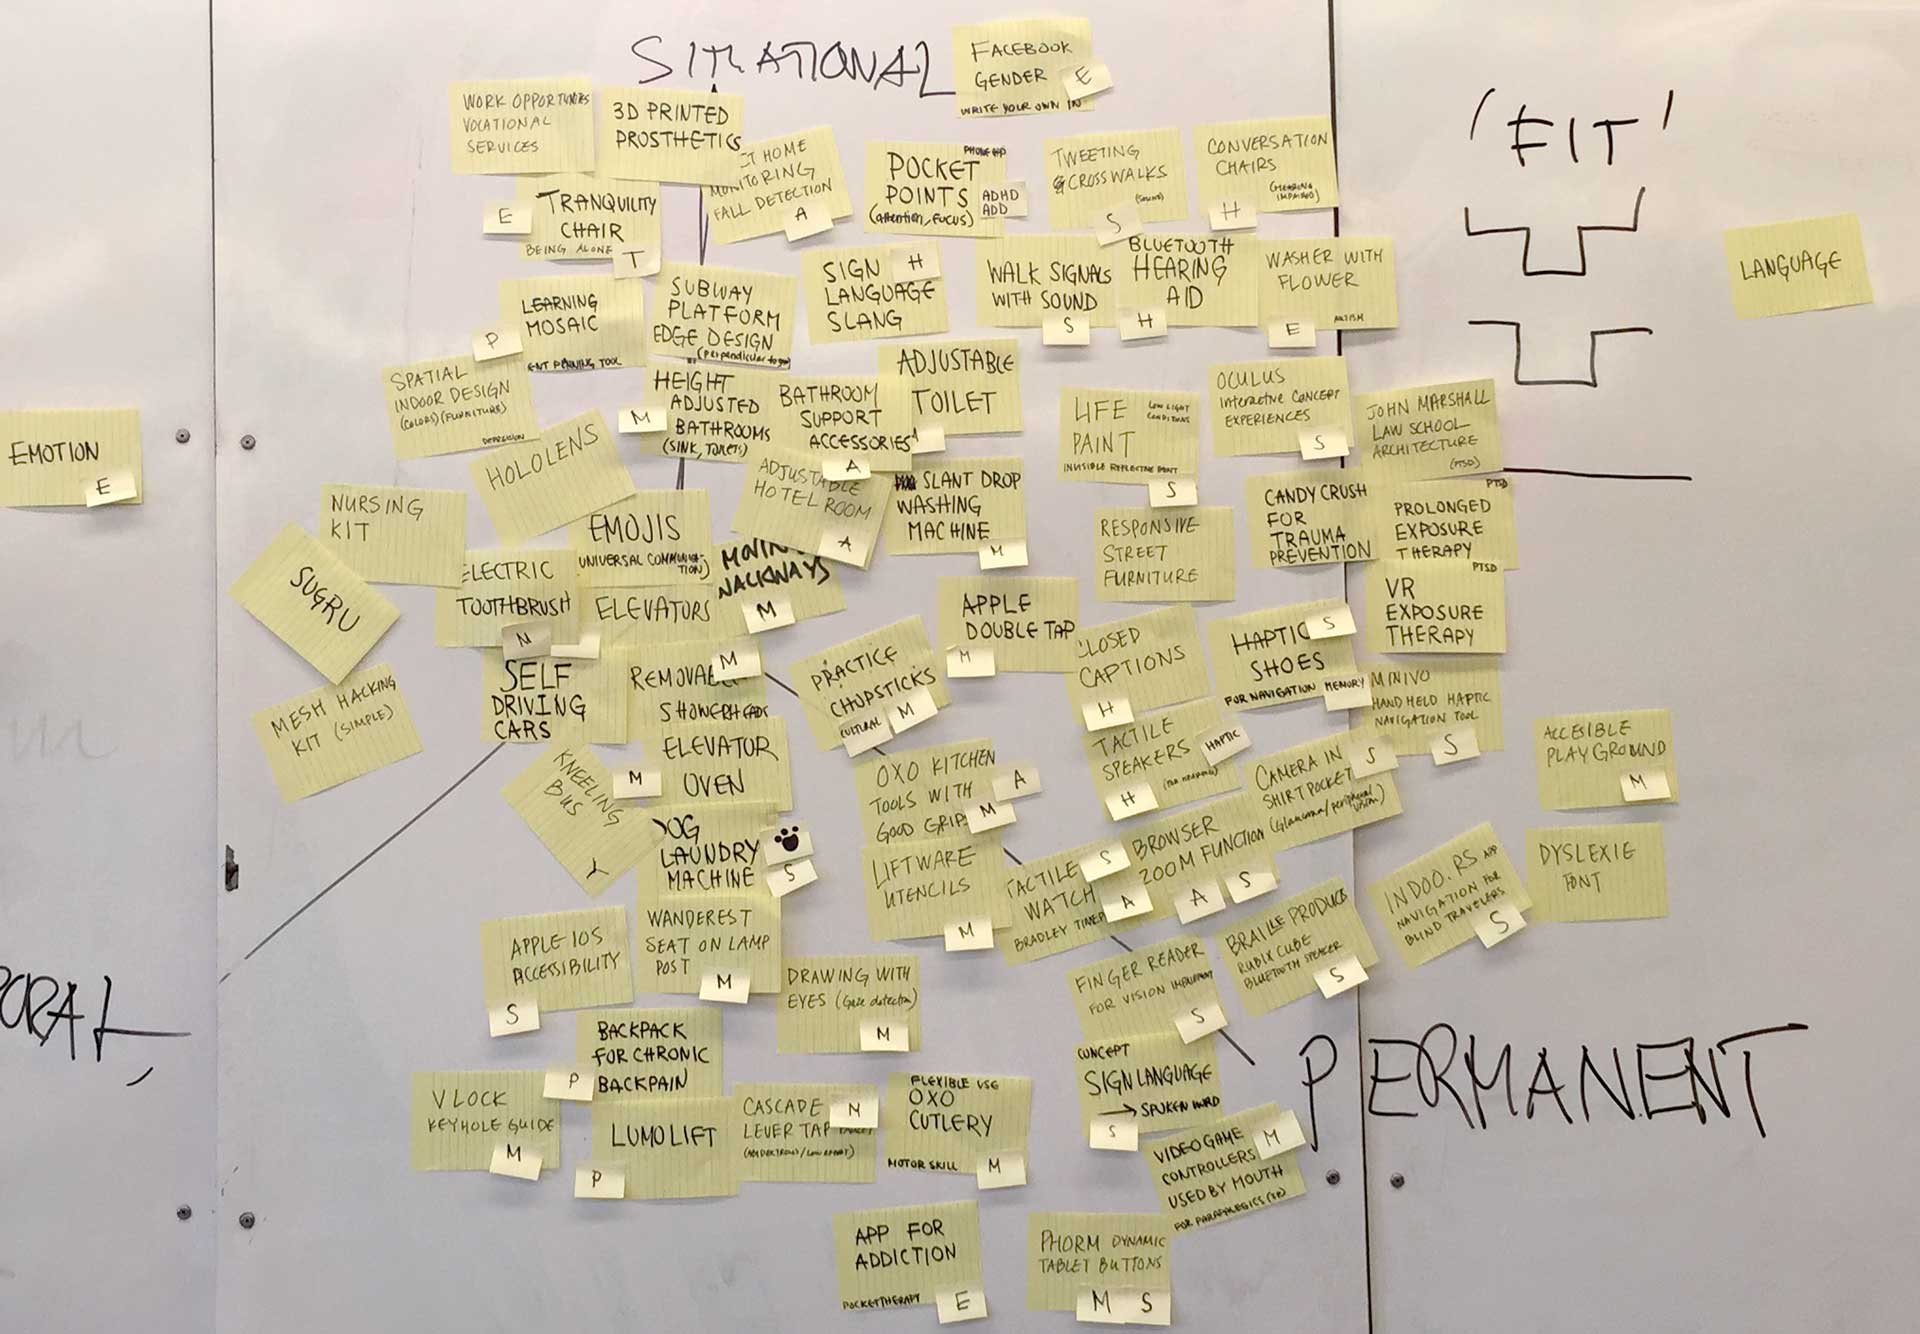 SITUATIONAL
FACEBOOK
GENDER
E
WRITE YOUR OWN IN
'FIT'
WORK OPPORTUNITIES
VOCATIONAL
SERVICES
3D PRINTED
PROSTHETICS
HOME
MONITORING
FALL DETECTION
A
PHONE APP
POCKET
POINTS
(attention, FOCUS)
ADHD
ADD
TWEETING
CROSSWALKS
(SOUND)
S
CONVERSATION
CHAIRS
(HEARING
IMPAIRED)
H
E
TRANQUILITY
CHAIR
BEING ALONE
T
SIGN
LANGUAGE
SLANG
H
WALK SIGNALS
WITH SOUND
S
BLUETOOTH
HEARING
AID
H
WASHER WITH
FLOWER
AUTISM
E
LANGUAGE
LEARNING
MOSAIC
P
SUBWAY
PLATFORM
EDGE DESIGN
SPATIAL
INDOOR DESIGN
(COLORS) (FURNITURE)
DEPRESSION
M
HEIGHT
ADJUSTED
BATHROOMS
(SINK, TOILETS)
BATHROOM
SUPPORT
ACCESSORIES
A
ADJUSTABLE
TOILET
LIFE
PAINT
LOW LIGHT
CONDITIONS
INVISIBLE REFLECTIVE PAINT
S
OCULUS
Interactive Concept
EXPERIENCES
S
JOHN MARSHALL
LAW SCHOOL
ARCHITECTURE
(PTSD)
EMOTION
E
HOLOLENS
ADJUSTABLE
HOTEL ROOM
A
SLANT DROP
WASHING
MACHINE
M
CANDY CRUSH
FOR
TRAUMA
PREVENTION
PTSD
PROLONGED
EXPOSURE
THERAPY
NURSING
KIT
EMOJIS
UNIVERSAL COMMUNICATION)
RESPONSIVE
STREET
FURNITURE
SUGRU
ELECTRIC
TOOTHBRUSH
N
ELEVATORS
M
APPLE
DOUBLE TAP
M
PTSD
VR
EXPOSURE
THERAPY
CLOSED
CAPTIONS
H
HAPTIC
SHOES
S
FOR NAVIGATION
MEMORY
MESH HACKING
KIT (SIMPLE)
SELF
DRIVING
CARS
M
SHOWERHEADS
PRACTICE
CHOPSTICKS
CULTURAL
M
MINIVO
HANDHELD HAPTIC
NAVIGATION TOOL
S
ACCESIBLE
PLAYGROUND
M
KNEELING
BUS
M
ELEVATOR
OVEN
OXO KITCHEN
TOOLS WITH
GOOD GRIPS
A
M
TACTILE
SPEAKERS
HAPTIC
H
CAMERA IN
SHIRT POCKET
(Glaucoma/peripheral
vision)
S
DOG
LAUNDRY
MACHINE
S
LIFTWARE
UTENCILS
M
TACTILE
WATCH
S
A
BROWSER
ZOOM FUNCTION
A
S
INDOO.RS APP
NAVIGATION FOR
BLIND TRAVELERS
S
DYSLEXIE
FONT
APPLE IOS
ACCESSIBILITY
S
WANDEREST
SEAT ON LAMP
POST
M
DRAWING WITH
EYES (Gaze detection)
M
FINGER READER
FOR VISION
S
BRAILLE PRODUCTS
RUBIX CUBE
BLUETOOTH SPEAKER
S
BACKPACK
FOR CHRONIC
BACKPAIN
P
CONCEPT
SIGN LANGUAGE
→ SPOKEN WORD
S
PERMANENT
V LOCK
KEYHOLE GUIDE
M
LUMO LIFT
P
CASCADE
LEVER TAP
FLEXIBLE USE
OXO
CUTLERY
MOTOR SKILL
M
VIDEO GAME
CONTROLLERS
USED BY MOUTH
M
APP FOR
ADDICTION
POCKET THERAPY
E
PHORM DYNAMIC
TABLET BUTTONS
M S